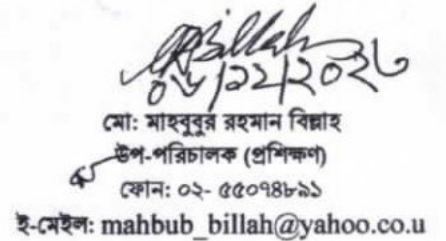 Billah
০৬/১২/২০২৩
মো: মাহবুবুর রহমান বিল্লাহ
উপ-পরিচালক (প্রশিক্ষণ)
ফোন: ০২- ৫৫০৭৪৮৯১
ই-মেইল: mahbub_billah@yahoo.co.u